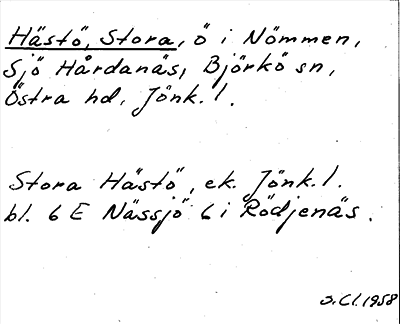 Hästö, Stora, ö i Nömmen,
Sjö Hårdanäs, Björkö sn,
Östra hd, Jönk. l.
Stora Hästö, ek. Jönk. l.
bl. 6 E Nässjö 6 i Rödjenäs.
3. Cl. 1958